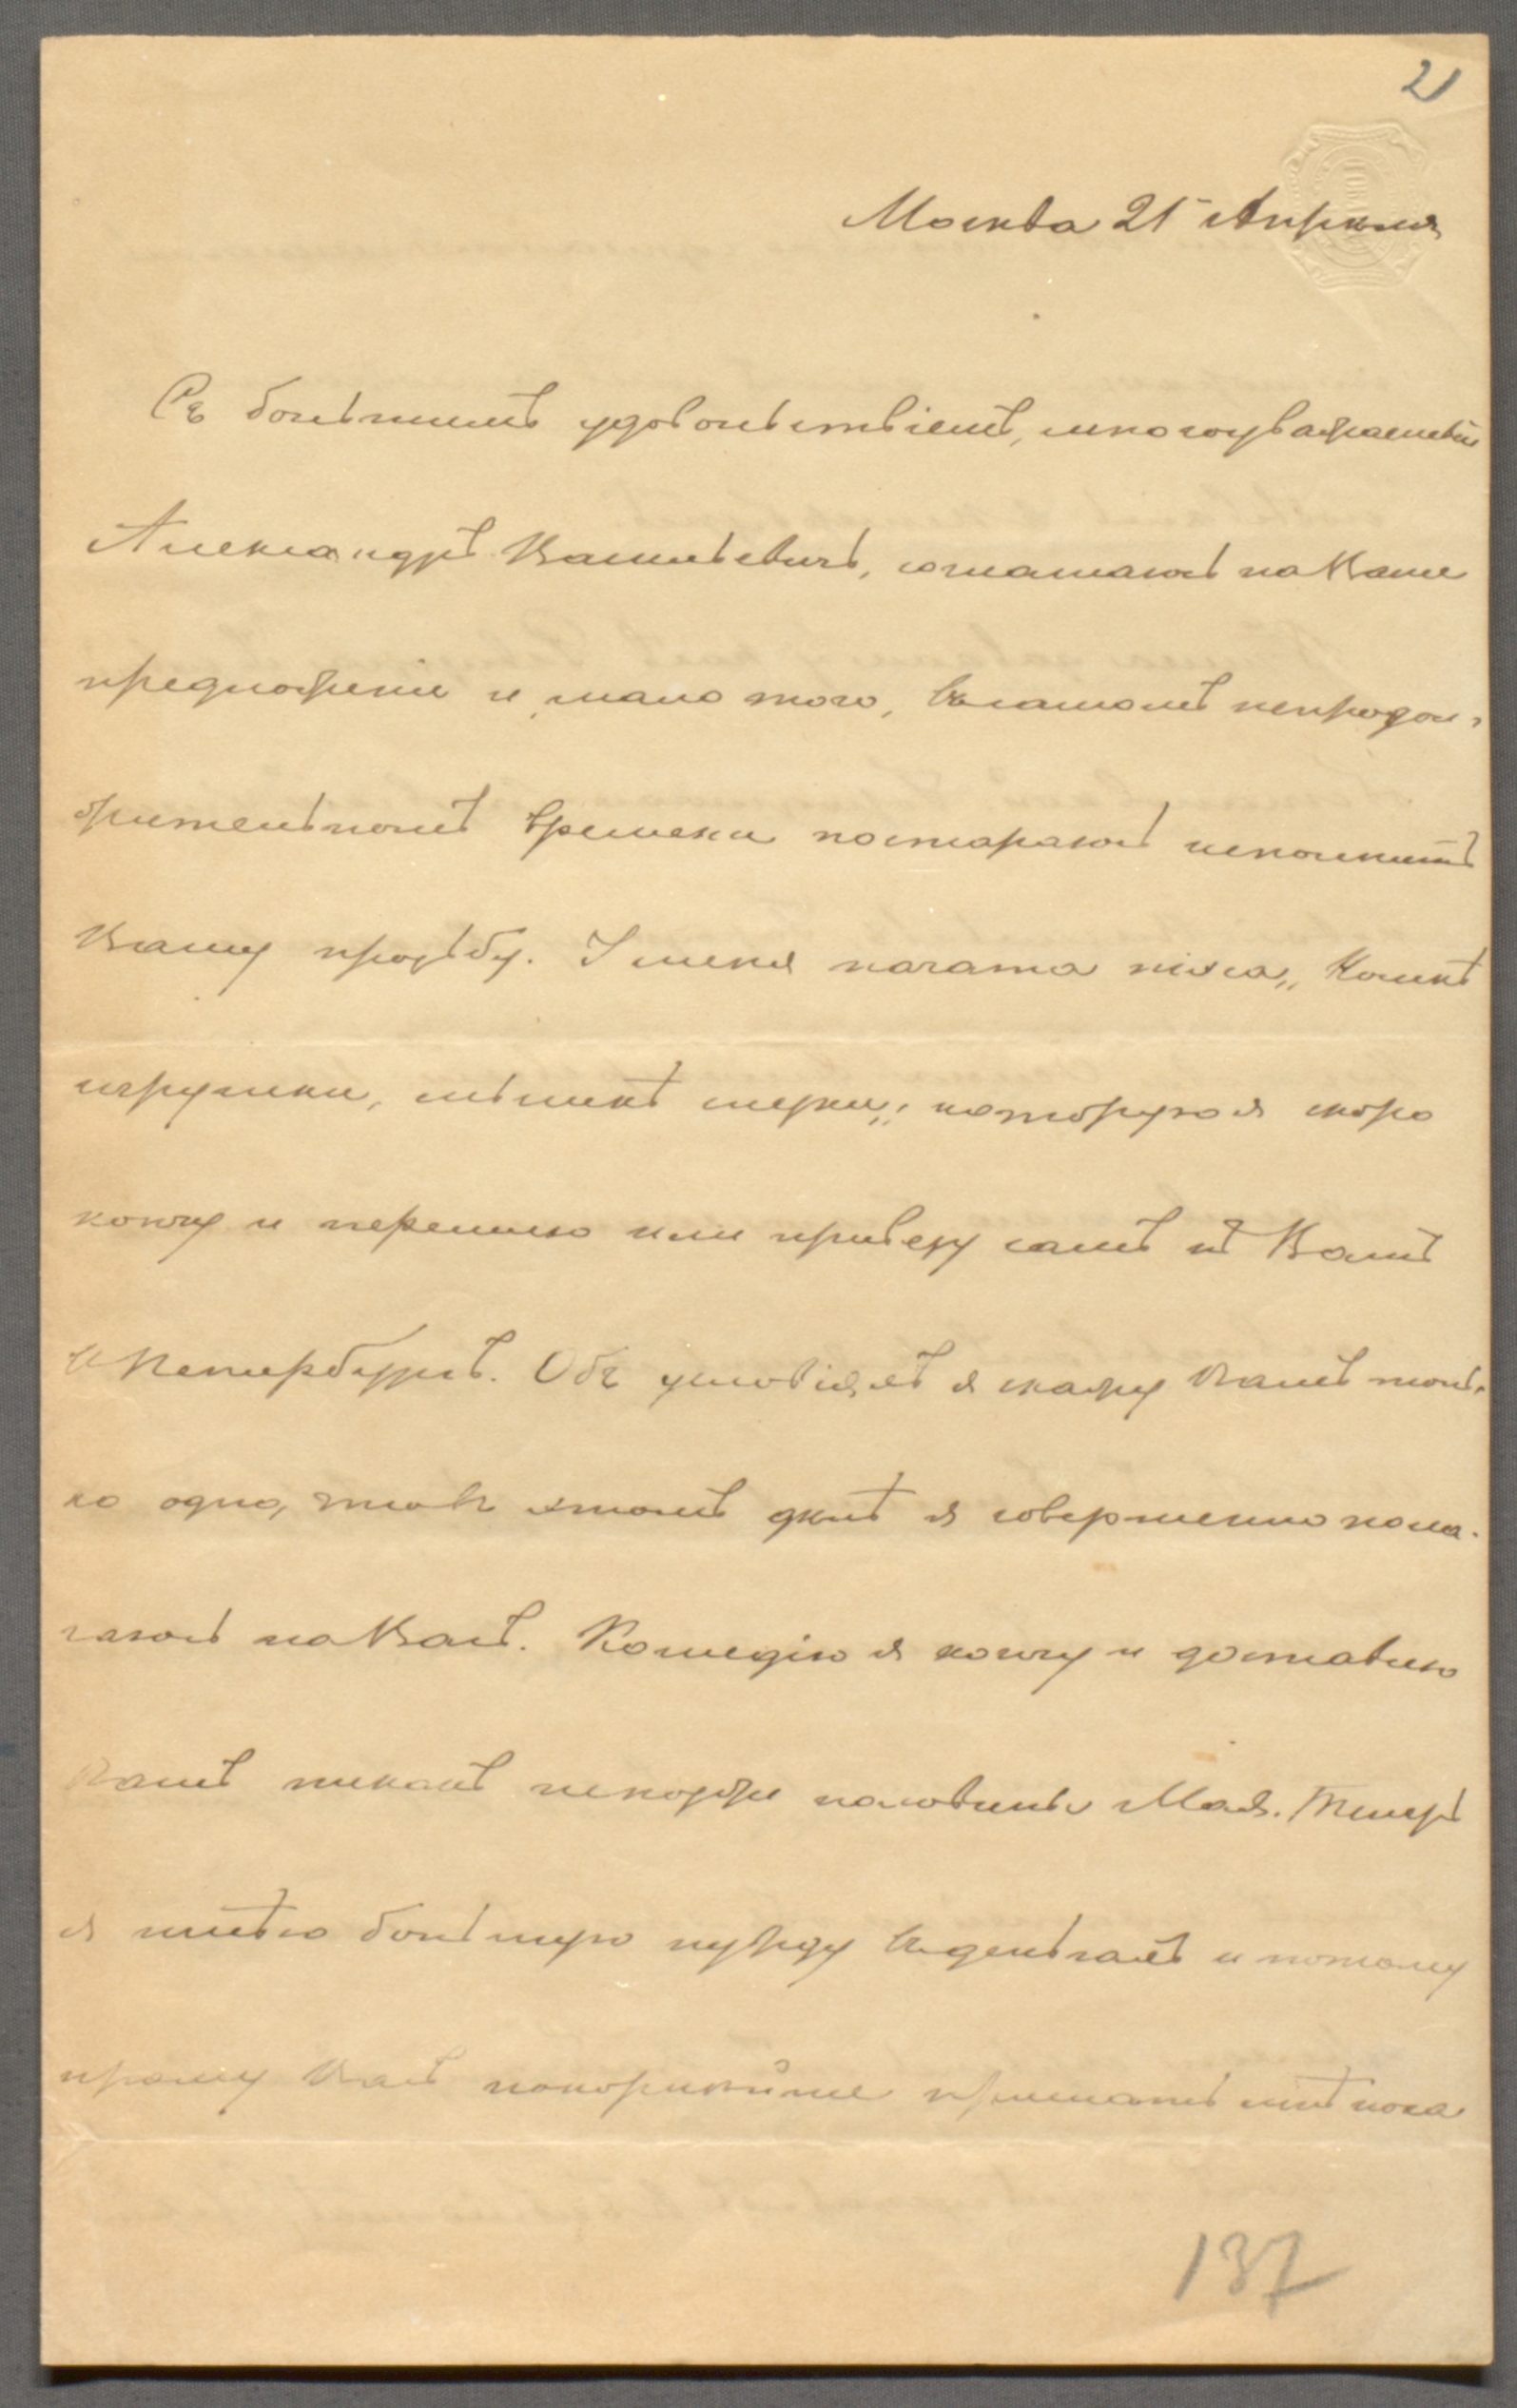 21
Москва 21 Апрѣля
Съ большимъ удовольствіемъ, многоуважаемый
Александръ Васильевичъ, соглашаюсь на Ваше
предложеніе и, мало того, въ самомъ непродол-
жительномъ времени постараюсь исполнить
Вашу прозьбу. У меня начата піэса „Кошкѣ
игрушки, мышкѣ слезки“, которую я скоро
кончу и перешлю или привезу самъ къ Вамъ
въ Петербургъ. Объ условіяхъ я скажу Вамъ толь-
ко одно, что въ этомъ дѣлѣ я совершенно пола-
гаюсь на Васъ. Комедію я кончу и доставлю
Вамъ никакъ не позже половины Мая. Теперь
я имѣю большую нужду въ деньгахъ и потому
прошу Васъ покорнѣйше прислать мнѣ пока
137